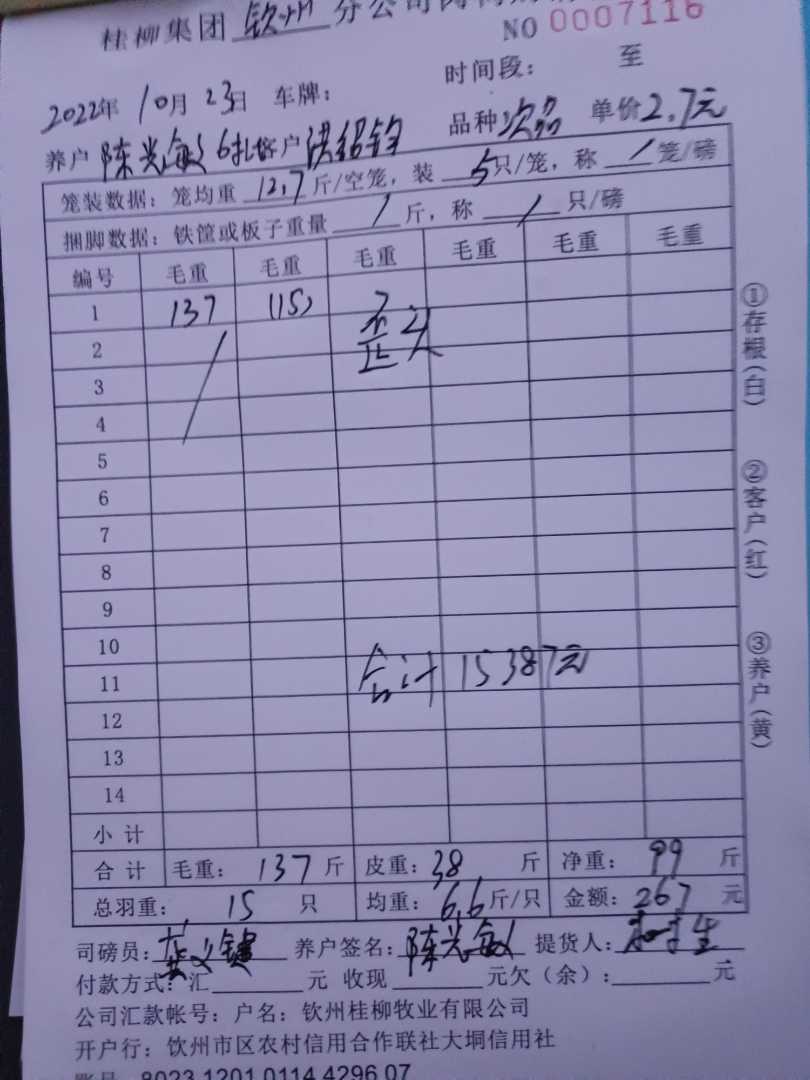 桂柳集团 钦州 分公司
NO 0007116
时间段: 至
2022年 10月 23日 车牌:
养户 陈光敏 6扎 客户 洪绍钧 品种 次品 单价 2.7元
笼装数据: 笼均重 12.7 斤/空笼, 装 5 只/笼, 称 / 笼/磅
捆脚数据: 铁筐或板子重量 / 斤, 称 / 只/磅
编号 毛重 毛重 毛重 毛重 毛重 毛重
1 137 (15) 歪头
2
3
4
5
6
7
8
9
10
11 合计 15387元
12
13
14
小计
合计 毛重: 137 斤 皮重: 38 斤 净重: 99 斤
总羽重: 15 只 均重: 6.6 斤/只 金额: 267 元
司磅员: 养户签名: 陈光敏 提货人:
付款方式: 汇 元 收现 元欠(余): 元
公司汇款帐号: 户名: 钦州桂柳牧业有限公司
开户行: 钦州市区农村信用合作联社大垌信用社
账号 8023 1201 0114 4296 07
①存根(白)
②客户(红)
③养户(黄)